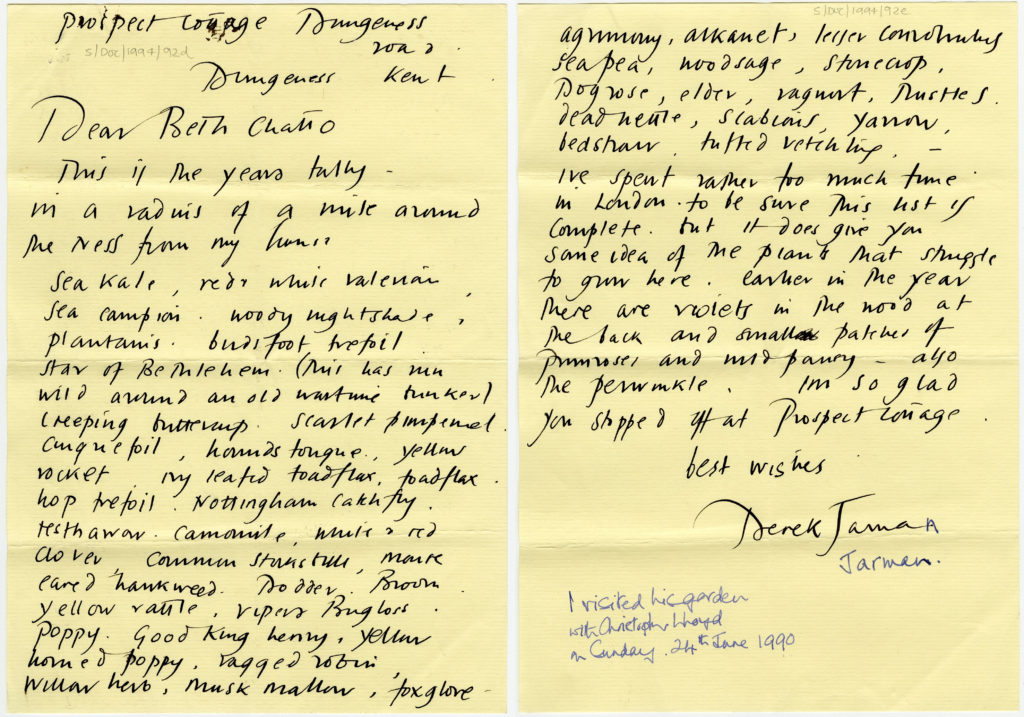 Prospect Cottage Dungeness
road.
S/Doc/1994/92d
Dungeness Kent
Dear Beth Chatto
This is the years tally -
in a radius of a mile around
the Ness from my house
Sea Kale, red & white valerian,
Sea campion. woody nightshade,
plantains. birdsfoot trefoil.
Star of Bethlehem. (this has run
wild around an old wartime bunker)
Creeping buttercup. Scarlet pimpernel.
Cinquefoil, hounds tongue, yellow
rocket ivy leafed toadflax, toadflax.
hop trefoil. Nottingham catchfly.
restharrow. camomile, white & red
clover, common storksbill, mouse
eared hawkweed. Dodder. Broom.
yellow rattle, vipers Bugloss.
poppy. Good King henry, yellow
horned poppy, ragged robin,
Willow herb, musk mallow, foxglove -
S/Doc/1994/92e
agrimony, alkanet, lesser convolvulus
sea pea, woodsage, stonecrop,
Dogrose, elder, ragwort, thistles.
dead nettle, scabious, yarrow,
bedstraw, tufted vetchling, -
ive spent rather too much time
in London. to be sure this list is
complete. but it does give you
some idea of the plants that struggle
to grow here. earlier in the year
there are violets in the wood at
the back and small patches of
primroses and wild pansy - also
the periwinkle. Im so glad
you stopped off at Prospect Cottage.
best wishes
Derek Jarman
Jarman.
I visited his garden
with Christopher Lloyd
on Sunday. 24th June 1990